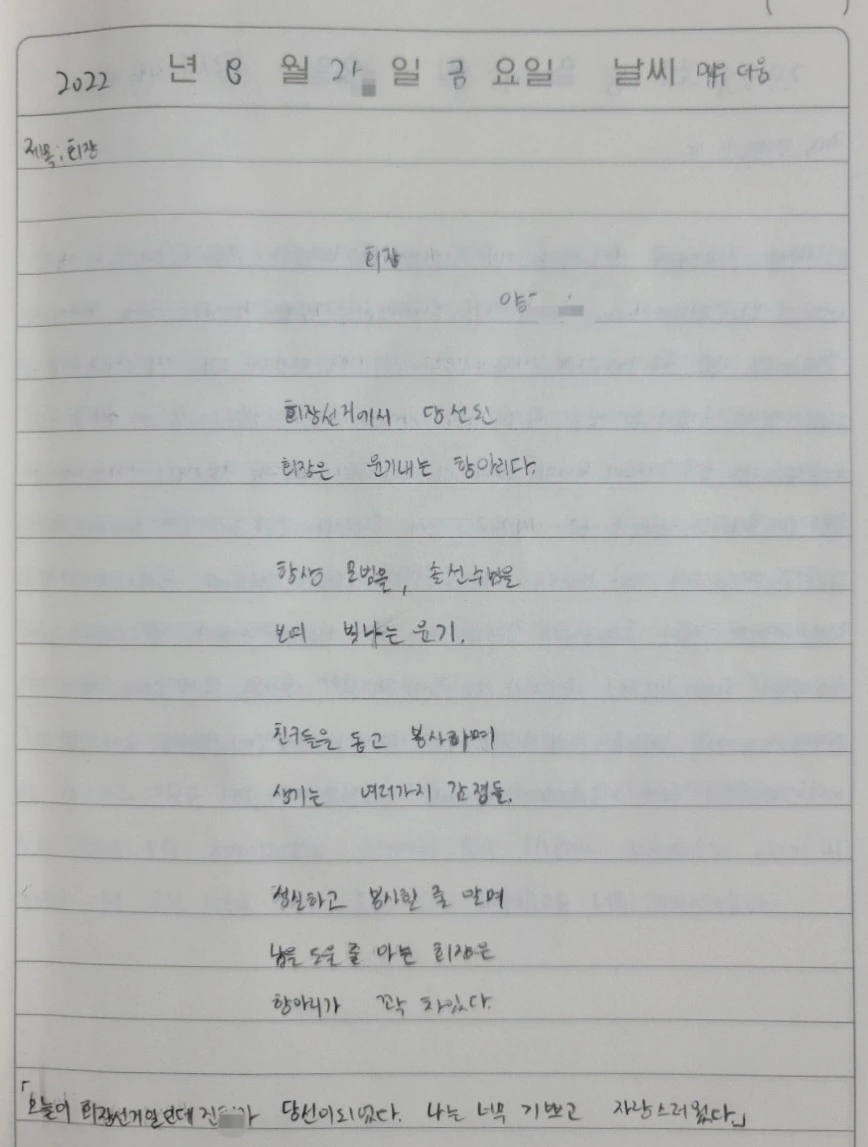 2022 년 8 월 2 일 금 요일 날씨 매우 더움
제목: 회장
회장
양
회장선거에서 당선된
회장은 윤기내는 항아리다.
항상 모범을, 솔선수범을
보여 빛나는 윤기.
친구들을 돕고 봉사하며
생기는 여러가지 감정들.
성실하고 봉사할 줄 알며
남을 도울 줄 아는 회장은
항아리가 꽉 차있다.
「오늘이 회장선거일인데 진 가 당선이되었다. 나는 너무 기쁘고 자랑스러웠다.」